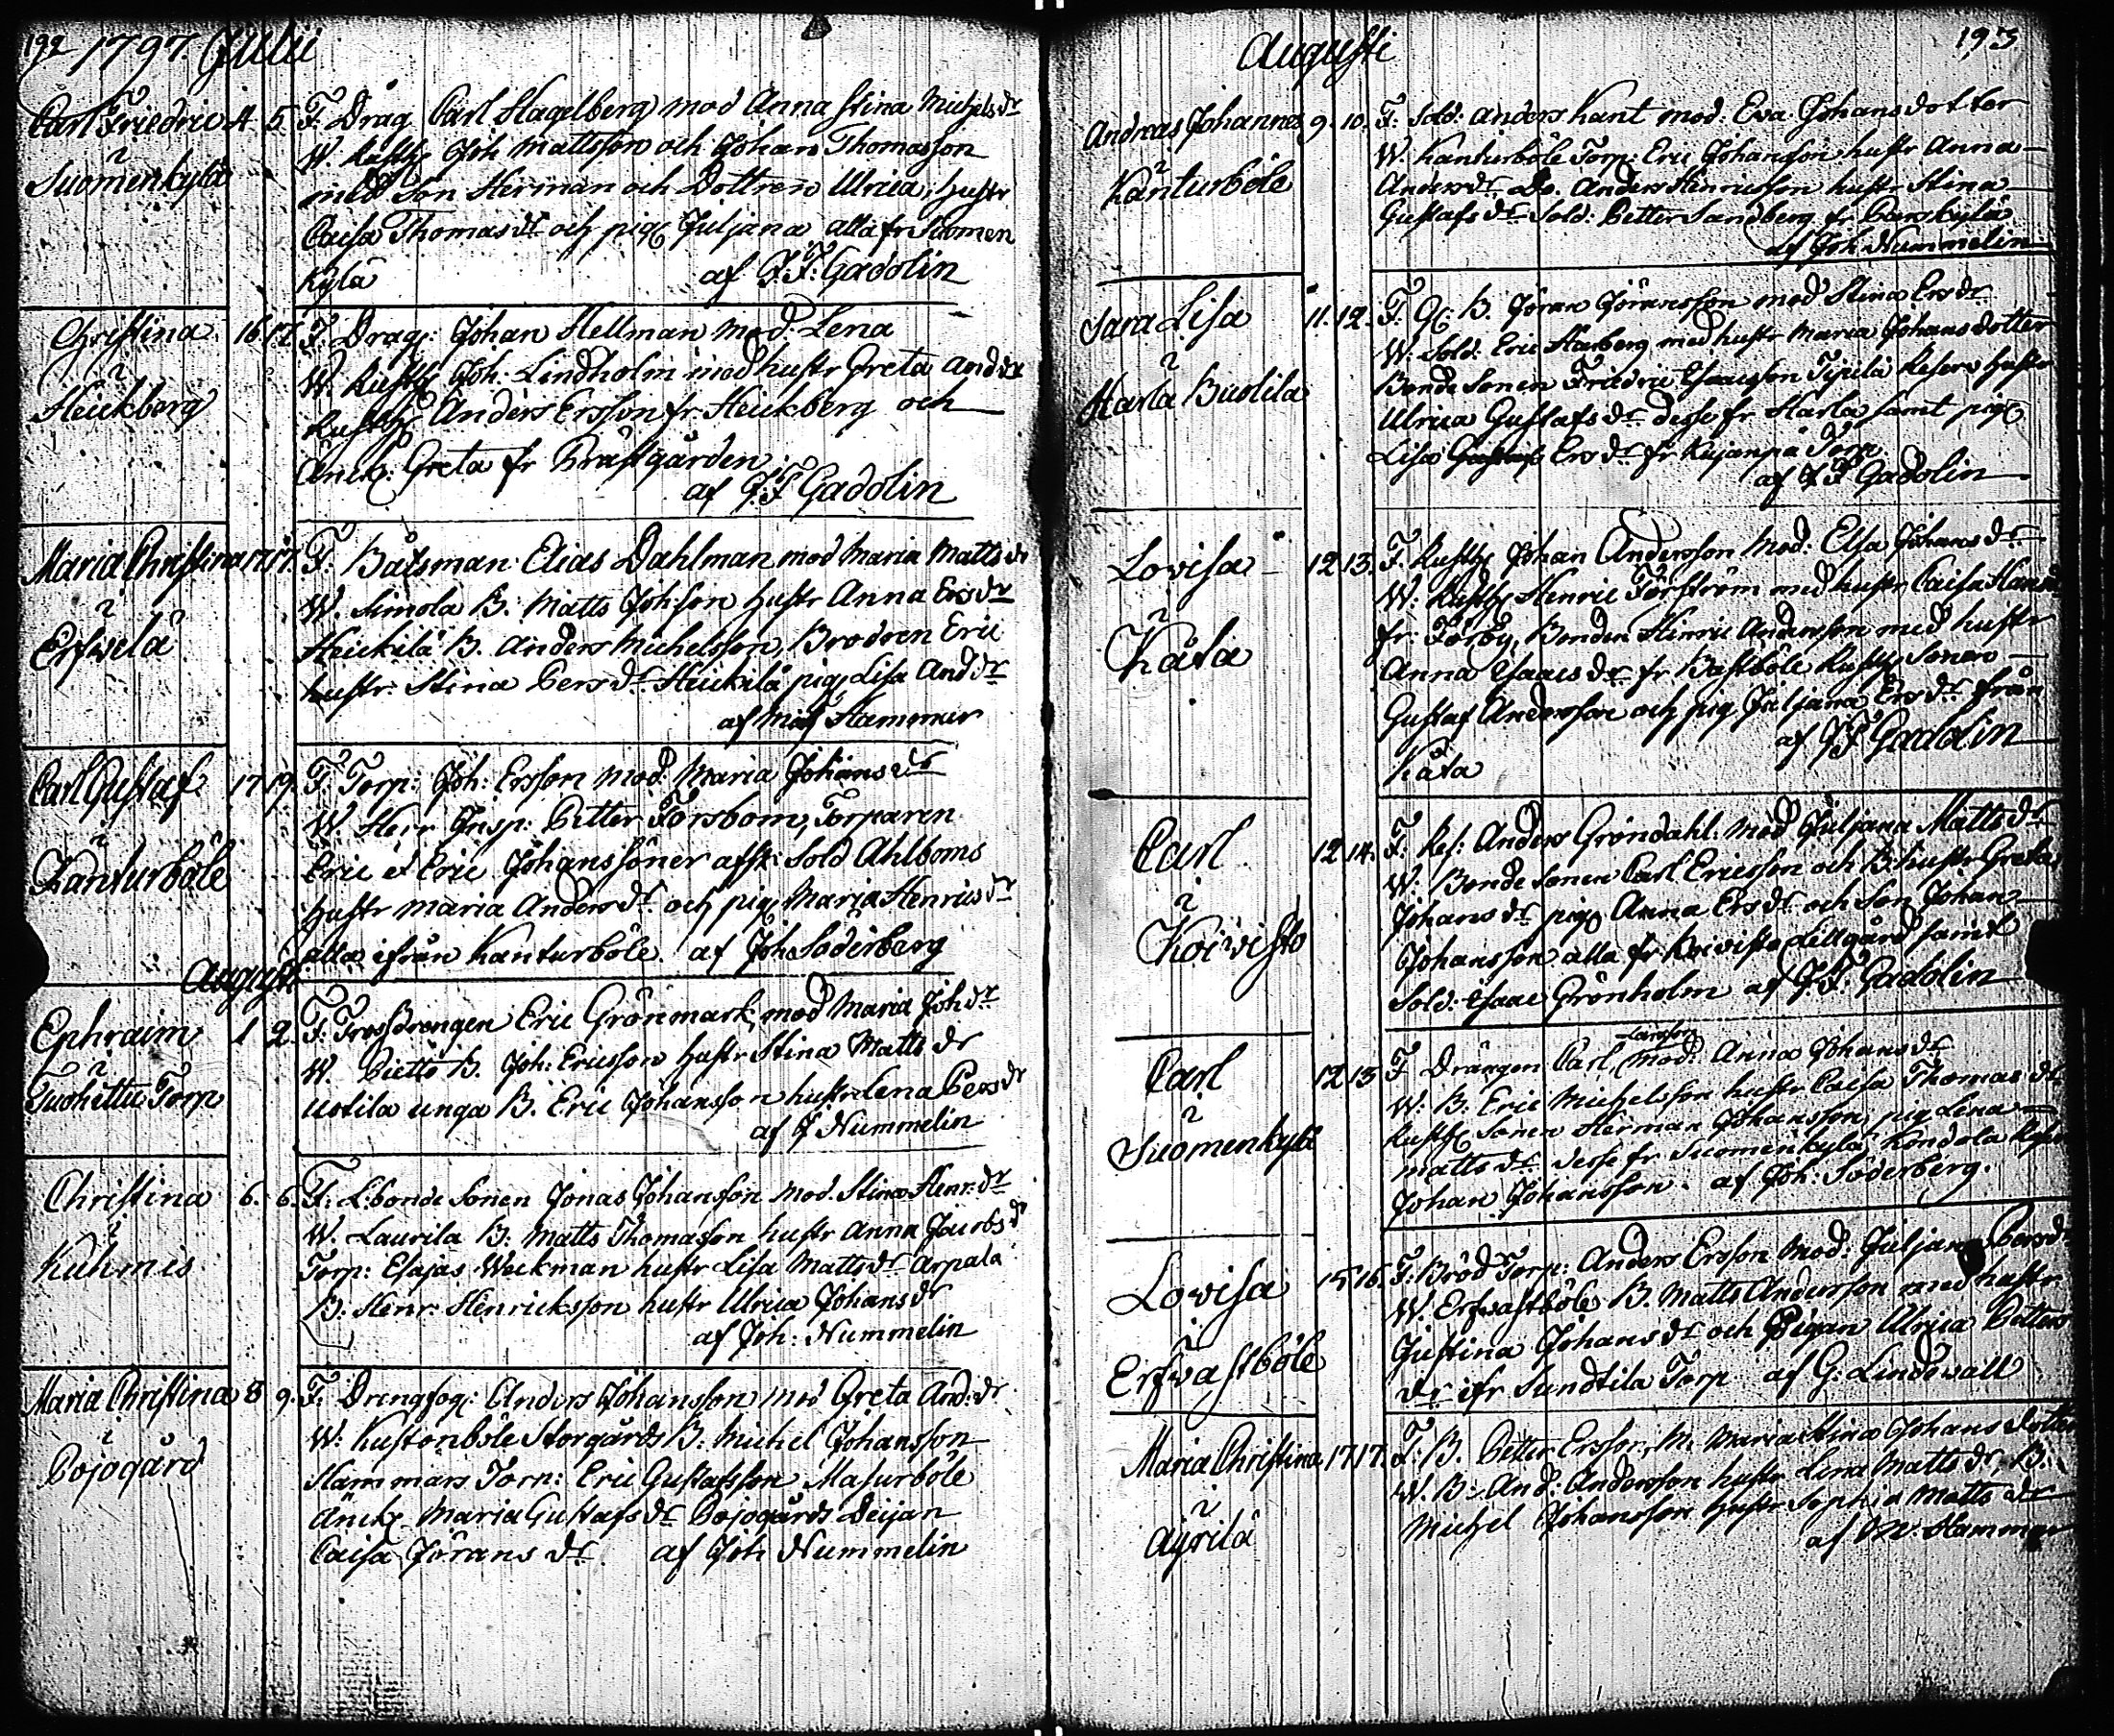 192 1797. Julii
Carl Friedric 4 5. F. Drag. Carl Hagelberg mod Anna Stina Michelsdr
i Suomenkylä
W. Rusth Joh Mattsson och Johan Thomasson
med Son Herman och Dottren Ulrica, hustr
Caisa Thomasdr och pig Juljana alla fr Suomen
kylä af J. F. Gadolin
Christina 16 17. F. Drag: Johan Hellman mod. Lena
i Heickberg
W. Rusth Joh: Lindholm med hustr Greta Anddr
Rusth Anders Ersson fr. Heickberg och
Änck. Greta fr Prästgården.
af J. F Gadolin
Maria Christina 17 17. F. Båtsman Elias Dahlman mod Maria Matts dr
i Erfwelä
W. Simola B. Matts Johson hustr Anna Ersdr
Heickilä B. Anders Michelsson, Brodren Eric
hustr. Stina Persdr Heickilä pig Lisa Anddr
af Hammar
Carl Gustaf 17 19. F. Torp: Joh: Ersson mod: Maria Johansdr
i Kanturböle
W. Herr Insp: Petter Forsbom, Torparen
Eric et Eric Johanssöner afsk: Sold Ahlboms
hustr Maria Andersdr och pig Maria Henricsdr
alla ifrån Kanturböle. af Joh Söderberg
Augusti
Ephraim 1 2. F. Trossdrengen Eric Grönmark, mod Maria Johdr
i Suohettu Torp
W. Piettö B. Joh: Ericsson hustr Stina Matts dr
Uotila unga B. Eric Johansson hustr Lena Persdr
af J Nummelin
Christina 6. 6. F: L:bonde Sonen Jonas Johansson mod. Stina Henr.dr
i Kuhmis
W. Laurila B: Matts Thomasson hustr Anna Jacobsdr
Torp: Esajas Weckman hustr Lisa Mattsdr Arpala
B: Henr: Henricksson hustr Ulrica Johansdr
af Joh: Nummelin
Maria Christina 8 9. F. Drengfog: Anders Johansson mod Greta And:dr
i Pojogård
W. Kustonböle Storgårds B: Michel Johansson
Hammars Torp: Eric Gustafsson Masurböle
Änck. Maria Gustafsdr Pojogårds Deijan
Caisa Jörans dr. af Joh Nummelin
Augusti 193
Andreas Johannes 9. 10. F: Sold: Anders Kant mod: Eva Johansdotter
i Kanturböle
W. Kanturböle Torp: Eric Johansson hustr Anna
Andersdr Do. Anders Henricsson hustr Stina
Gustafsdr Sold: Petter Sandberg fr Parskylä
af Joh Nummelin
Sara Lisa 11. 12. F. B. Jöran Jöransson mod Stina Ersdr
i Harla Buolila
W. Sold: Eric Starberg med hustr Maria Johansdotter
Bonde Sonen Friedric Esaiesson Reserv hustr
Ulrica Gustafsdr desse fr Harla samt pig
Lisa Ersdr fr Kujanpä Torp
af J F Gadolin
Lovisa 12 13. F. Rusth Johan Andersson Mod: Elsa Johansdr
i Kåta
W: Rusth Henric Förström med hustr Caisa
fr. Torby, Bonden Hinric Andersson med hustr
Anna Isaacs dr fr Bastböle Rusth Sonen
Gustaf Andersson och pig Juljana Ersdr från
Kåta af J F Gadolin
Carl 12 14. F: Res: Anders Gröndahl. mod Juljana Mattsdr
i Koiwisto
W. Bonde Sonen Carl Ericsson och B: hustr Greta
Johansdr pig Anna Ersdr och Son Johan
Johansson alla fr Koiwisto Lillgård samt
Sold: Isaac Grönholm af J. F. Gadolin
Carl 12 13 F Drängen Carl Larsson mod: Anna Johansdr
i Suomenkylä
W. B: Eric Michelsson hustr Caisa Thomas dr
Rusth Sonen Herman Johansson, pig Lena
Matts dr desse fr Suomenkylä Kondola
Johan Johansson. af Joh: Söderberg.
Lovisa 15 16. F: Bröd Torp: Anders Ersson mod: Juljana Persdr
i Erfwastböle
W. Erfwastböle B. Matts Andersson med hustr
Justina Johansdr och Pigan Ulrica Petters
dr ifr Sundtila Torp af G: Lindewall
Maria Christina 17 17. F: B. Petter Ersson, M. Maria Stina Johans Dotter
i Äyrilä
W. B: And: Andersson hustr Lena Matts dr, B.
Michel Johansson hustr Sophia Matts dr
af M. Hammar